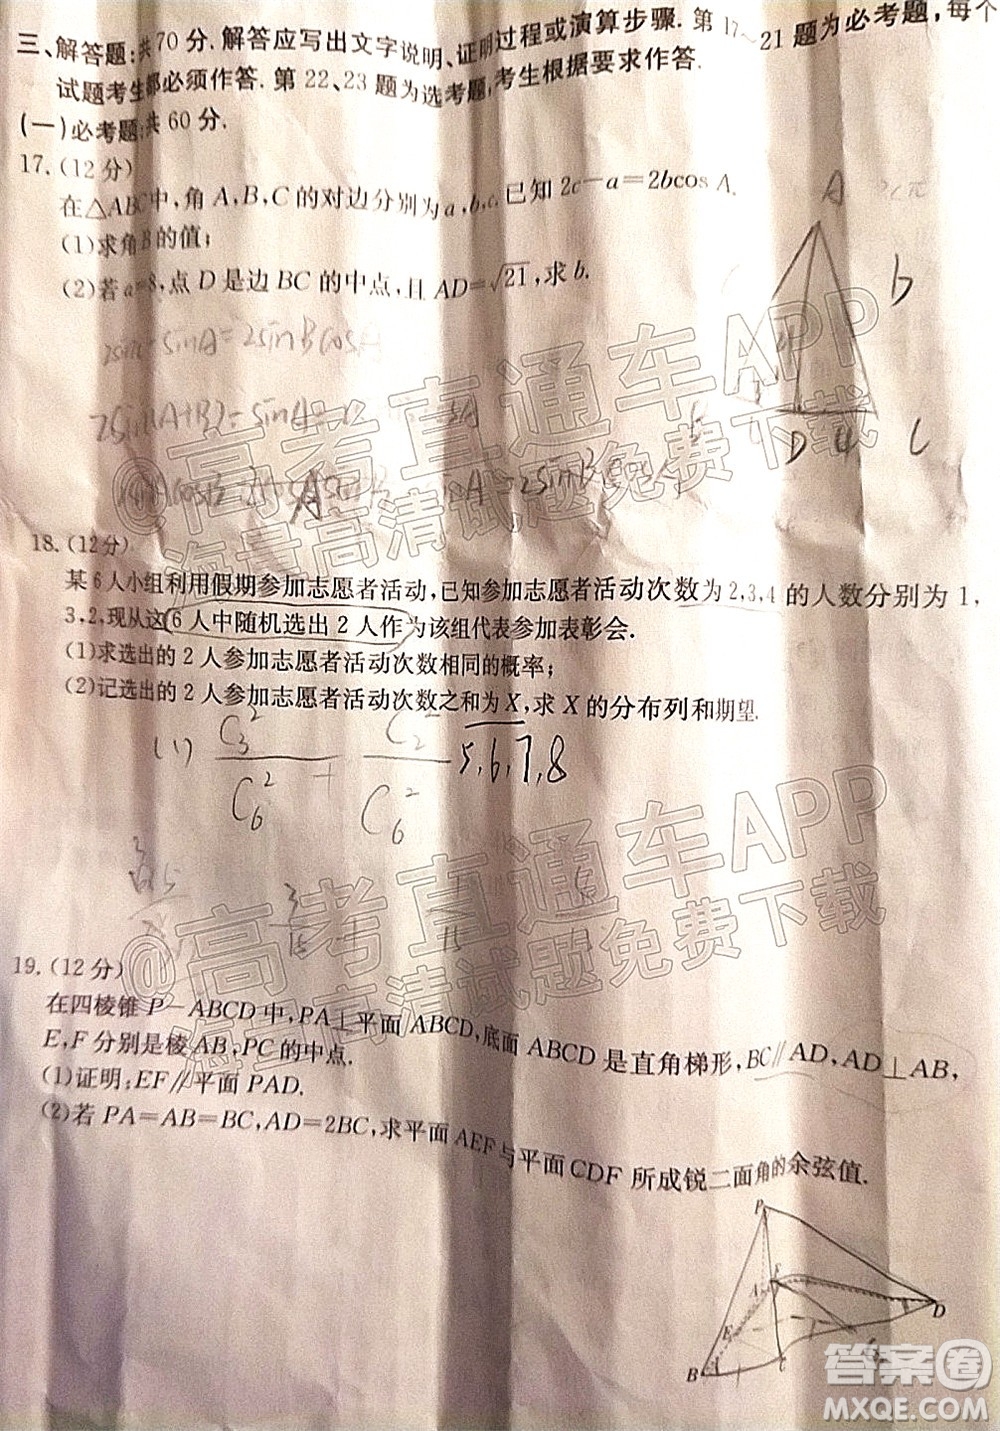 三、解答题:共70分.解答应写出文字说明、证明过程或演算步骤.第17~21题为必考题,每个
试题考生都必须作答.第22、23题为选考题,考生根据要求作答.
(一)必考题:共60分.
17.(12分)
在△ABC中,角A,B,C的对边分别为a,b,c.已知2c-a=2bcos A.
(1)求角B的值;
(2)若a=8,点D是边BC的中点,且AD=√21,求b.
A
b
D 4 C
2sinC-sinA=2sinBcosA
2sin(A+B)-sinA=
18.(12分)
某6人小组利用假期参加志愿者活动,已知参加志愿者活动次数为2,3,4的人数分别为1,
3,2,现从这6人中随机选出2人作为该组代表参加表彰会.
(1)求选出的2人参加志愿者活动次数相同的概率;
(2)记选出的2人参加志愿者活动次数之和为X,求X的分布列和期望.
(1) C₃²/C₆² + C₂²/C₆² 5,6,7,8
3/15 + 1/15
19.(12分)
在四棱锥P-ABCD中,PA⊥平面ABCD,底面ABCD是直角梯形,BC∥AD,AD⊥AB,
E,F分别是棱AB,PC的中点.
(1)证明:EF∥平面PAD.
(2)若PA=AB=BC,AD=2BC,求平面AEF与平面CDF所成锐二面角的余弦值.
P
A F
D
E
B C
@高考直通车APP
海量高清试题免费下载
@高考直通车APP
海量高清试题免费下载
答案圈
MXQE.COM